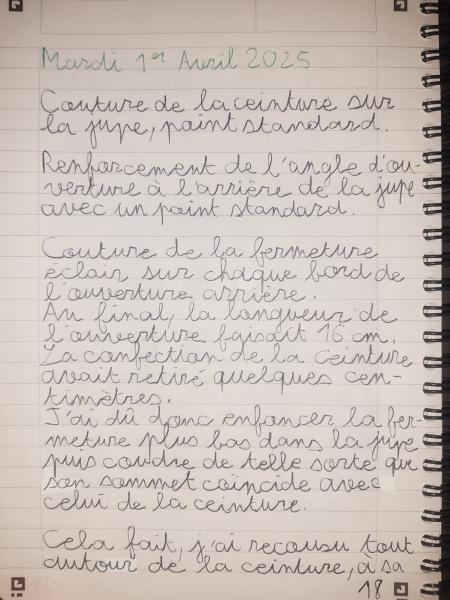 Mardi 1er Avril 2025
Couture de la ceinture sur
la jupe, point standard.
Renforcement de l'angle d'ou-
verture à l'arrière de la jupe
avec un point standard.
Couture de la fermeture
éclair sur chaque bord de
l'ouverture arrière.
Au final, la longueur de
l'ouverture faisait 16 cm.
La confection de la ceinture
avait retiré quelques cen-
timètres.
J'ai dû donc enfoncer la fer-
meture plus bas dans la jupe
puis coudre de telle sorte que
son sommet coincide avec
celui de la ceinture.
Cela fait, j'ai recousu tout
autour de la ceinture, à sa
18